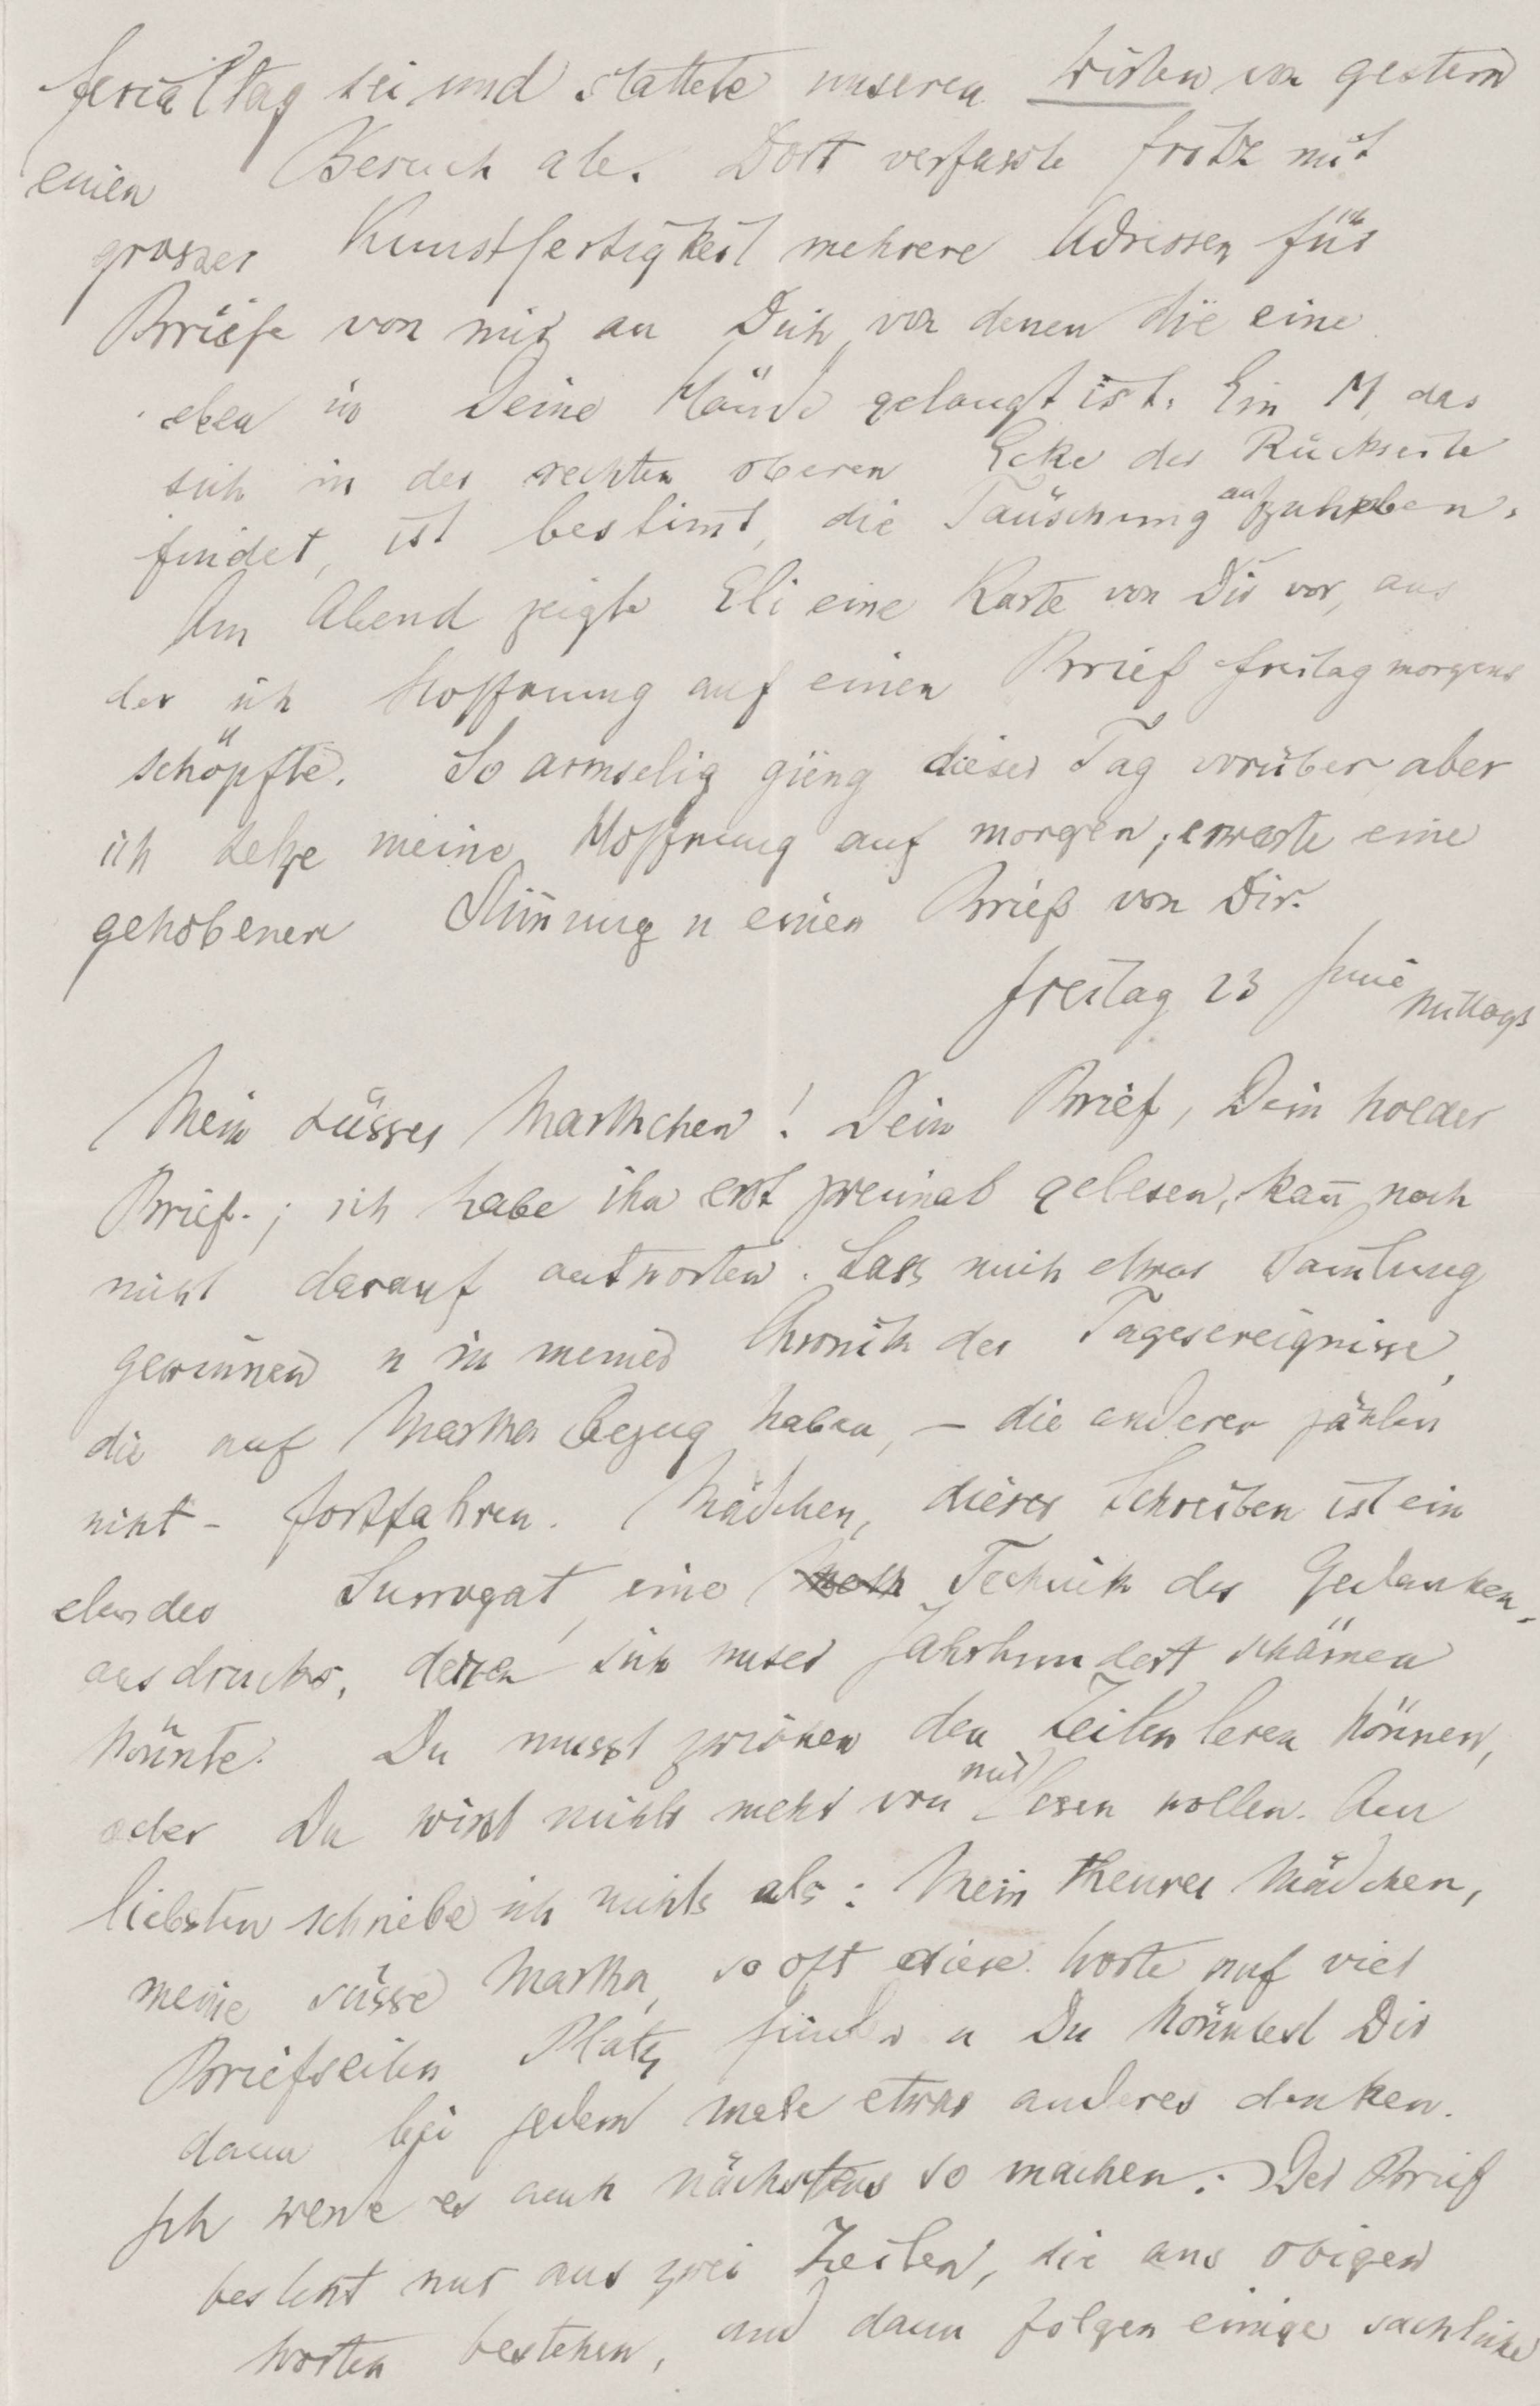 ferialtag sei und stattete unseren Wirten von gestern
einen Besuch ab. Dort verfasste Fritz mit
grosser Kunstfertigkeit mehrere Adressen für
Briefe von mir an Dich, von denen die eine
eben in Deine Hände gelangt ist. Ein M, das
sich in der rechten oberen Ecke der Rückseite
findet, ist bestimt, die Täuschung aufzuheben.
Am Abend zeigte Eli eine Karte von Dir vor, aus
der ich Hoffnung auf einen Brief Freitag morgens
schöpfte. So armselig gieng dieser Tag vorüber, aber
ich setze meine Hoffnung auf morgen; erwarte eine
gehobenere Stim̄ung u einen Brief von Dir.
Freitag 23 Juni
Mittags
Mein süsses Marthchen! Dein Brief, Dein holder
Brief.; ich habe ihn erst zweimal gelesen, kan̄ noch
nicht darauf antworten. Lass mich etwas Samlung
gewinnen u in meiner Chronik der Tagesereignisse,
die auf Martha Bezug haben, – die anderen zählen
nicht – fortfahren. Mädchen, dieses Schreiben ist ein
elendes Surrogat, eine Technik des Gedanken-
ausdrucks, deren sich unser Jahrhundert schämen
könnte. Du musst zwischen den Zeilen lesen können,
oder Du wirst nichts mehr von mir lesen wollen. Am
liebsten schriebe ich nichts als: Mein theures Mädchen,
meine süsse Martha, so oft diese Worte auf vier
Briefseiten Platz finden u Du könntest Dir
dann bei jedem male etwas anderes denken.
Ich werde es auch nächstens so machen. Der Brief
besteht nur aus zwei Zeilen, die aus obigen
Worten bestehen, und dann folgen einige sachliche